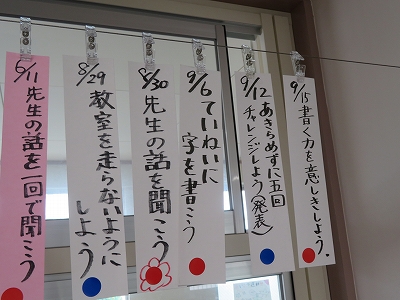 6/11 先生の話を一回で聞こう
8/29 教室を走らないように
しよう
8/30 先生の話を聞こう
9/6 ていねいに
字を書こう
9/12 あきらめずに五回
チャレンジしよう(発表)
9/15 書く力を意しきしよう.